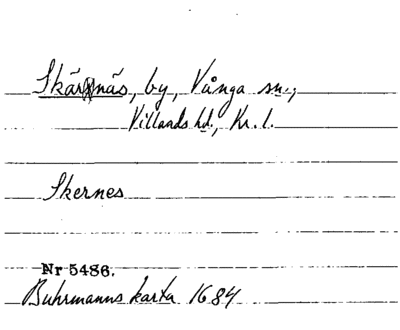 Skärnäs, by, Vånga sn.,
Villands hd., Kr. l.
Skernes
Nr 5486.
Buhrmanns karta 1684